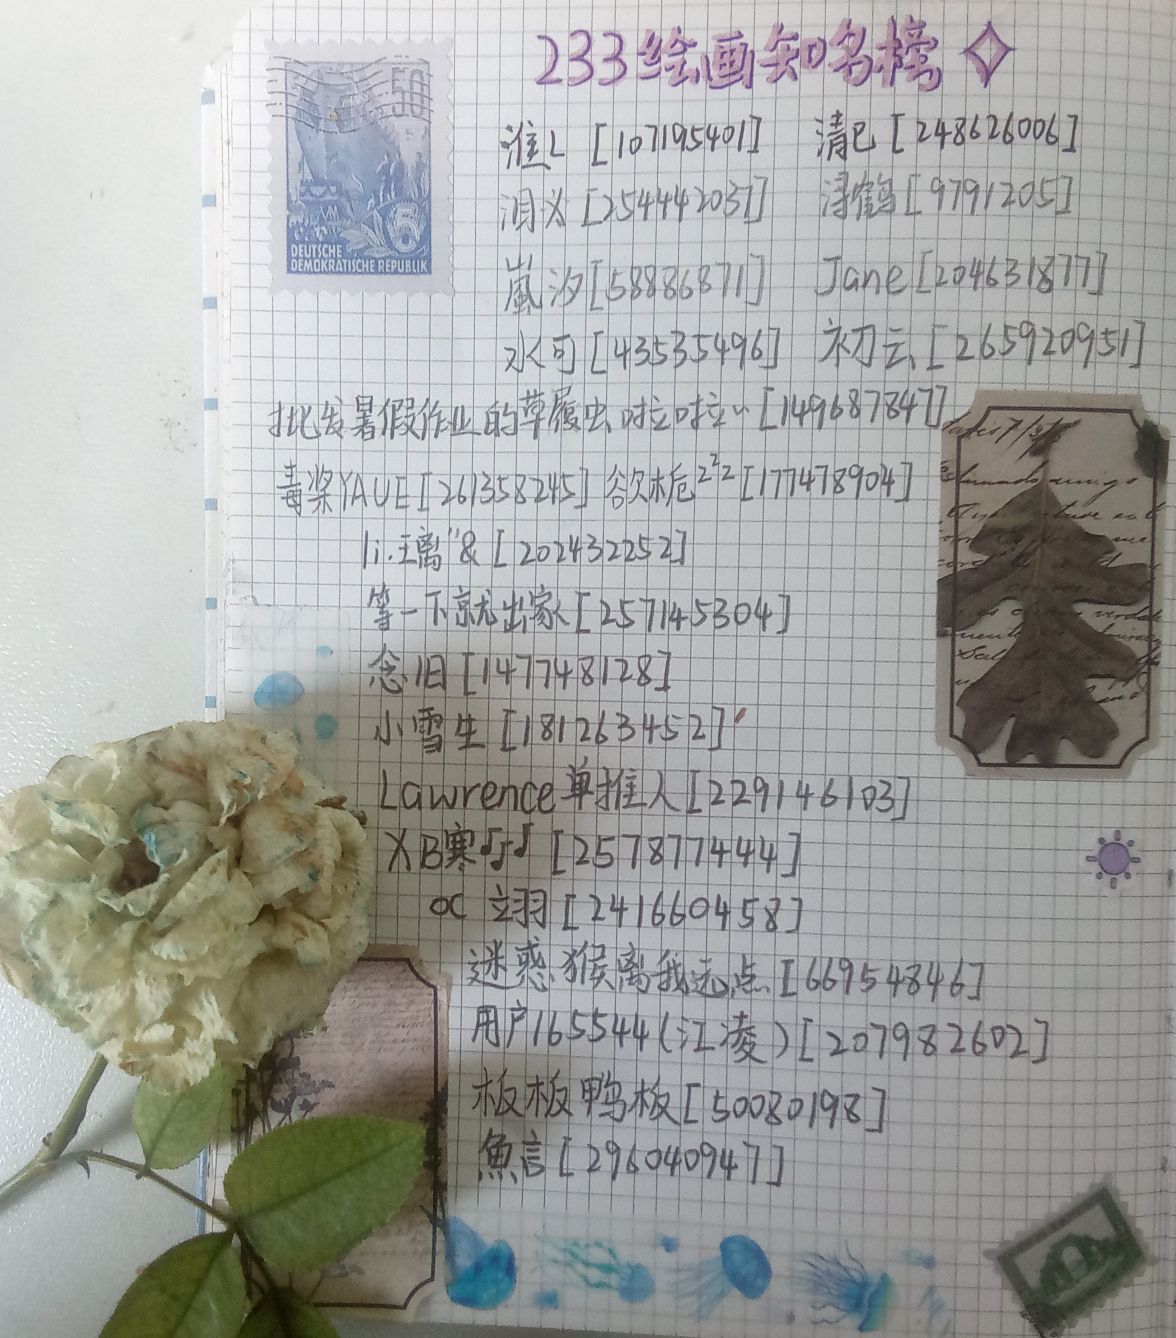 233绘画知名榜
50
5
DEUTSCHE
DEMOKRATISCHE REPUBLIK
淮L [107195401] 清巳 [248626006]
泪义 [254442037] 浔鹤 [9791205]
嵐汐 [58886871] Jane [204631877]
水可 [43535496] 初云 [265920951]
批发暑假作业的草履虫啦啦” [149687847]
毒浆YAUE [261358245] 欲栀²²² [177478904]
li.璃“& [202432252]
等一下就出家 [257145304]
念旧 [147748128]
小雪生 [181263452]
Lawrence单推人 [229146103]
XB寒♪♪♪ [257877444]
∝ 翊 [241660458]
迷惑猴离我远点 [669548846]
用户165544(江凌) [207982602]
板板鸭板 [50080198]
魚言 [296040947]